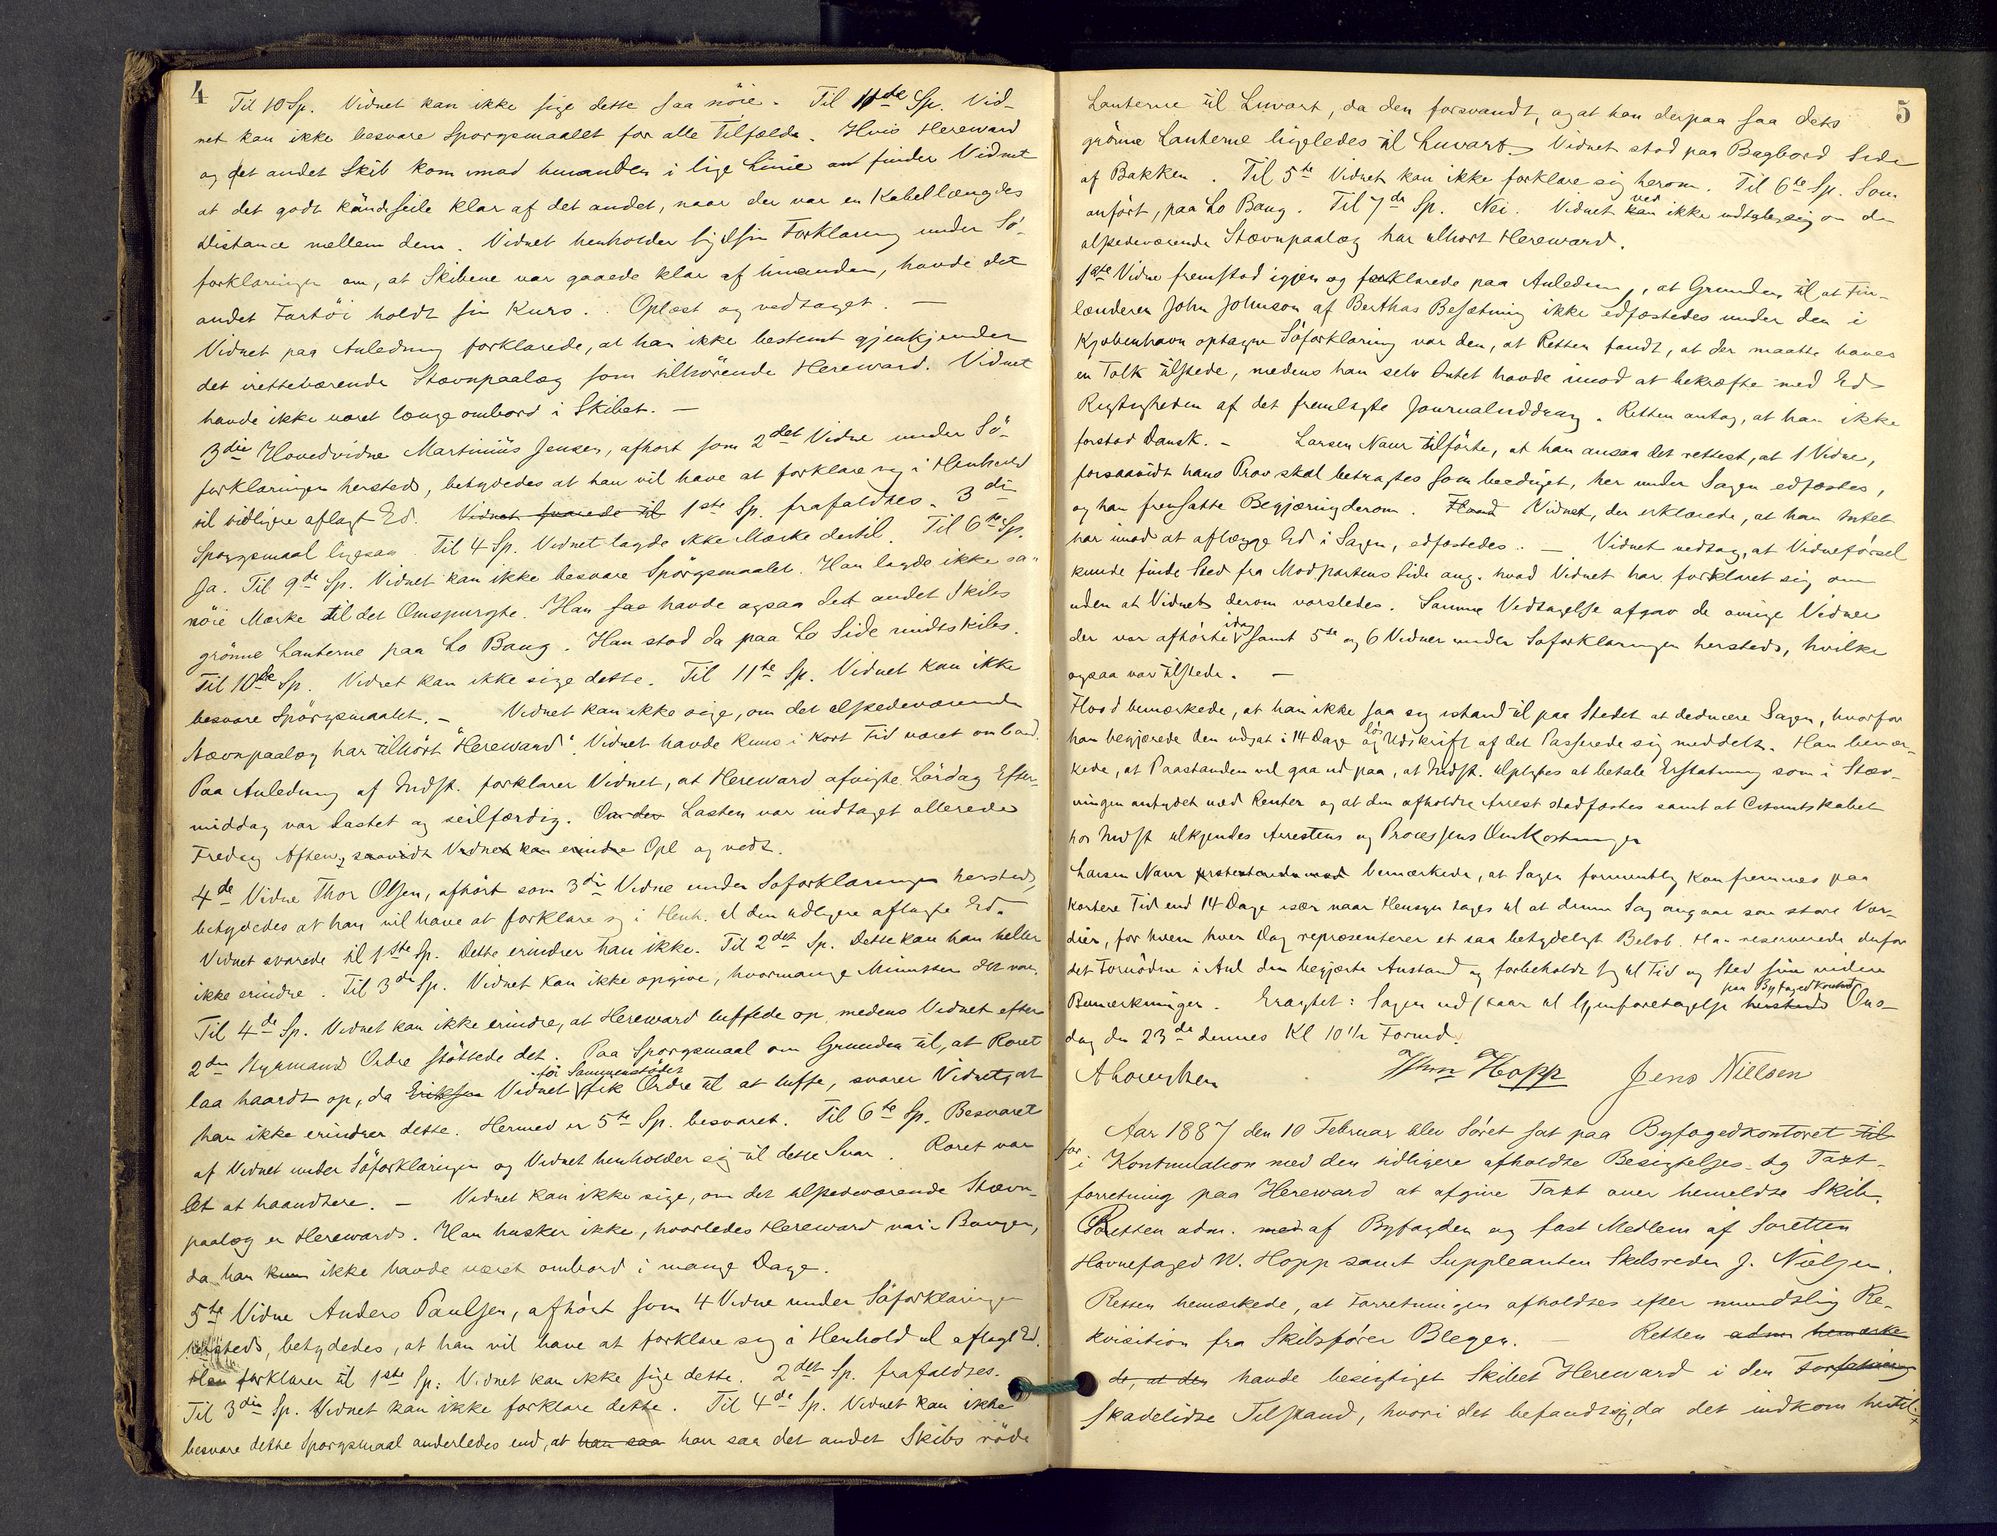 4
Til 10 Sp. Vidnet kan ikke sige dette saa nöie. Til 11te Sp. Vid-
net kan ikke besvare Spørgsmaalet for alle Tilfælde. Hvis Hereward
og det andet Skib kom imod hinanden i lige Linie finder Vidnet
at det godt kunde seile klar af det andet, naar der var en Kabellængdes
Distance mellem dem. Vidnet henholder sig til sin Forklaring under Sö-
forklaringen om, at Skibene var gaaede klar af hinanden, havde det
andet Fartöi holdt sin Kurs. Oplæst og vedtaget. —
Vidnet paa Anledning forklarede, at han ikke bestemt gjenkjender
det iretteværende Stævnpaalæg som tilhörende Hereward. Vidnet
havde ikke været længe ombord i Skibet. —
3die Hovedvidne Martinius Jensen, afhört som 2det Vidne under Sö-
forklaringen hersteds, betydedes at han vil have at forklare sig i Henhold
til tidligere aflagt Ed. Vidnet svarede til 1ste Sp. frafaldtes. 3die
Spørgsmaal ligesaa. Til 4 Sp. Vidnet lagde ikke Mærke dertil. Til 6te Sp.
Ja. Til 9de Sp. Vidnet kan ikke besvare Spörgsmaalet. Han lagde ikke saa
nöie Mærke til det Omspurgte. Han saa havde ogsaa det andet Skibs
grönne Lanterne paa Lo Baug. Han stod da paa Lo Side midtskibs.
Til 10de Sp. Vidnet kan ikke sige dette. Til 11te Sp. Vidnet kan ikke
besvare Spörgsmaalet. — Vidnet kan ikke sige, om det tilstedeværende
Stævnpaalæg har tilhört "Hereward". Vidnet havde kuns i kort Tid været ombord.
Paa Anledning af Indst. forklarer Vidnet, at Hereward afvigte Lördag Efter-
middag var lastet og seilfærdig. Om den Lasten var indtaget allerede
Fredag Aften, saavidt Vidnet kan erindre Opl og vedt.
4de Vidne Thor Olsen, afhört som 3die Vidne under Søforklaringen hersteds,
betydedes at han vil have at forklare sig i Henh. til den tidligere aflagte Ed.
Vidnet svarede til 1ste Sp. Dette erindrer han ikke. Til 2det Sp. Dette kan han heller
ikke erindre. Til 3die Sp. Vidnet kan ikke opgive, hvormange Minutter det var.
Til 4de Sp. Vidnet kan ikke erindre, at Hereward luffede op, medens Vidnet efter
2den Styrmands Ordre støttede det. Paa Spørgsmaal om Grunden til, at Roret
för Sammenstödet
laa haardt op, da Eriksen Vidnet fik Ordre til at luffe, svarer Vidnet, at
han ikke erindrer dette. Hermed er 5te Sp. besvaret. Til 6te Sp. Besvaret
af Vidnet under Söforklaringen og Vidnet henholder sig til dette Svar. Roret var
let at haandtere. — Vidnet kan ikke sige, om det tilstedeværende Stævn-
paalæg er Herewards. Han husker ikke, hvorledes Hereward var i Baugen,
da han kun ikke havde været ombord i mange Dage.
5te Vidne Anders Paulsen, afhört som 4 Vidne under Söforklaringen
hersteds, betydedes, at han vil have at forklare sig i Henhold til aflagt Ed.
Han forklarer til 1ste Sp.: Vidnet kan ikke sige dette. 2det Sp. frafaldtes.
Til 3die Sp. Vidnet kan ikke forklare dette. Til 4de Sp. Vidnet kan ikke
besvare dette Spørgsmaal anderledes end, at han saa han saa det andet Skibs röde
5
Lanterne til Luvart, da den forsvandt, og at han derpaa saa dets
grönne Lanterne ligeledes til Luvart. Vidnet stod paa Bagbord Side
af Bakken. Til 5te Vidnet kan ikke forklare sig herom. Til 6te Sp. Som
anfört, paa Lo Baug. Til 7de Sp. Nei. Vidnet ved kan ikke udtale sig om det
tilstedeværende Stævnpaalæg har tilhört Hereward.
1ste Vidne fremstod igjen og forklarede paa Anledning, at Grunden til at Fin-
lænderen John Johnson af Berthas Besætning ikke edfæstedes under den i
Kjøbenhavn optagne Söforklaring var den, at Retten fandt, at der maatte haves
en Tolk tilstede, medens han selv Intet havde imod at bekræfte med Ed
Rigtigheden af det fremlagte Journaluddrag. Retten antog, at han ikke
forstod Dansk. — Larsen Naur tilförte, at han ansaa det rettest, at 1 Vidne,
forsaavidt hans Prov skal betragtes som beediget, her under Sagen edfæstes,
og han fremsatte Begjæring derom. Flood Vidnet, der erklærede, at han Intet
har imod at aflægge Ed i Sagen, edfæstedes. — Vidnet vedtog, at Vidneförsel
kunde finde Sted fra Modpartens Side ang. hvad Vidnet har forklaret sig om
uden at Vidnet derom varsledes. Samme Vedtagelse afgav de övrige Vidner
der var afhörte idag samt 5te og 6 Vidner under Søforklaringen hersteds, hvilke
ogsaa var tilstede. —
Flood bemærkede, at han ikke saa sig istand til paa Stedet at deducere Sagen, hvorfor
han begjærede den udsat i 14 Dage og Udskrift af det Passerede sig meddelt. Han bemær-
kede, at Paastanden vil gaa ud paa, at Indst. tilpligtes at betale Erstatning som i Stæv-
ningen antydet med Renter og at den afholdte Arrest stadfæstes samt at Citantskabet
hos Indst tilkjendes Arrestens og Processens Omkostninger
Larsen Naur protesterede mod bemærkede, at Sagen formentlig kan fremmes paa
kortere Tid end 14 Dage især naar Hensyn tages til at denne Sag angaar saa store Vær-
dier, for hvem hver Dag repræsenterer et saa betydeligt Beløb. Han reserverede derfor
det Fornödne i Anl den begjærte Anstand og forbeholdt sig til Tid og Sted sine videre
paa Byfogedkontoret
Bemærkninger. Eragtet: Sagen udstaar til Gjenforetagelse hersteds Ons-
dag den 23de dennes Kl 10 1/2 Formd.
Hopp Jens Nielsen
Aar 1887 den 10 Februar blev Söret sat paa Byfogedkontoret til
for i Kontinuation med den tidligere afholdte Besigtelses- og Taxt-
forretning paa Hereward at afgive Taxt over bemeldte Skib.
Retten adm. med af Byfogden og fast Medlem af Søretten
Havnefoged W. Hopp samt Suppleanten Skibsreder J. Nielsen.
Retten bemærkede, at Forretningen afholdtes efter mundtlig Re-
kvisition fra Skibsfører Blegen. — Retten adm bemærke
de, at den havde besigtiget Skibet Hereward i den Forfatning
skadelidte Tilstand, hvori det befandt sig, da det indkom hertil.